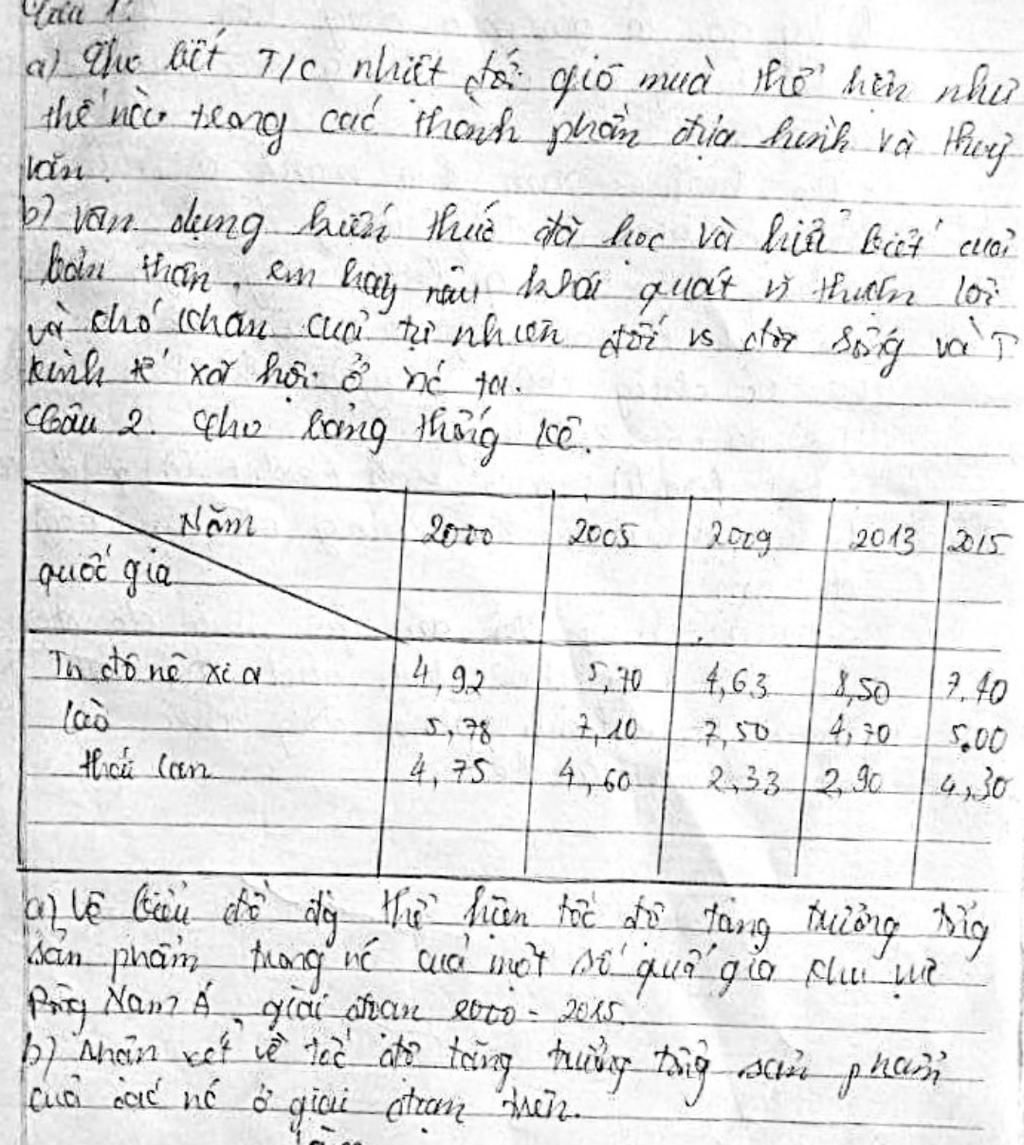 Câu 1:
a) Cho biết T/c nhiệt đới gió mùa thể hiện như
thế nào trong các thành phần địa hình và thuỷ
văn.
b) Vận dụng kiến thức đã học và hiểu biết của
bản thân, em hãy nêu khái quát về thuận lợi
và khó khăn của tự nhiên đối vs đời sống và T
kinh tế xã hội ở nc ta.
Câu 2. Cho bảng thống kê.
Năm 2000 2005 2009 2013 2015
quốc gia
In đô nê xi a 4,92 5,70 4,63 8,50 7.40
Lào 5,78 7,10 7,50 4,70 5.00
thái Lan 4,75 4,60 2,33 2,90 4,30
a) Vẽ biểu đồ đg thể hiện tốc độ tăng trưởng tổng
sản phẩm trong nc của một số quốc gia khu vực
Đông Nam Á, giai đoạn 2000 - 2015.
b) Nhận xét về tốc độ tăng trưởng tổng sản phẩm
của các nc ở giai đoạn trên.